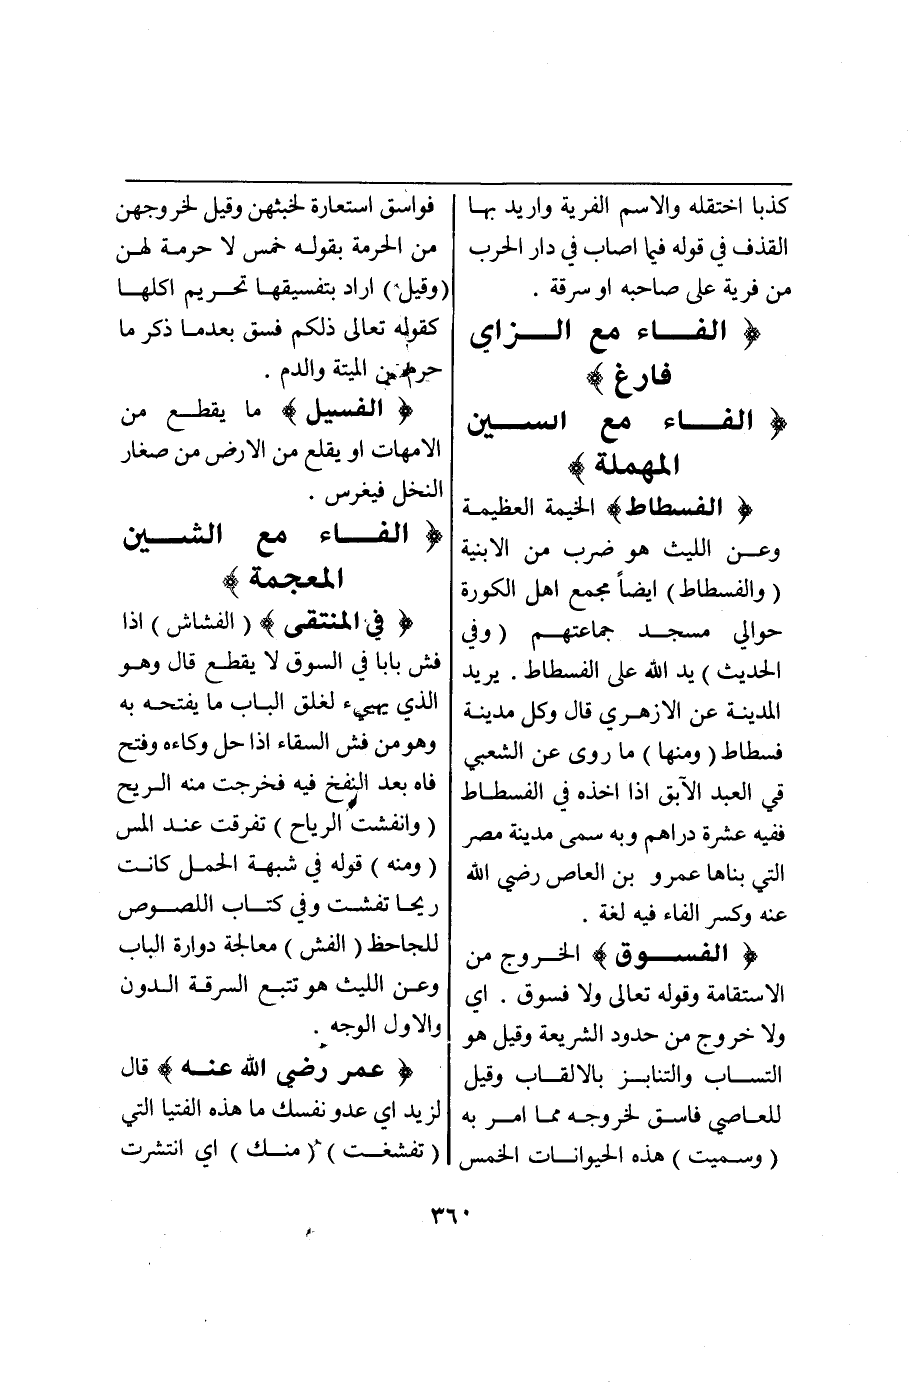 كذبا اختقله والاسم الفرية واريد بها
القذف في قوله فيما اصاب في دار الحرب
من فرية على صاحبه او سرقة .
﴿ الفـــاء مع الـــزاي
فارغ ﴾
﴿ الفـــاء مع السـيـن
المهملة ﴾
﴿ الفسطاط﴾ الخيمة العظيمـة
وعـن الليث هو ضرب من الابنية
( والفسطاط ) ايضاً مجمع اهل الكورة
حوالي مسجـد جماعتهـم ( وفي
الحديث ) يد الله على الفسطاط . يريد
المدينـة عن الازهـري قال وكل مدينـة
فسطاط ( ومنها ) ما روى عن الشعبي
في العبد الآبق اذا اخذه في الفسطـاط
ففيه عشرة دراهم وبه سمى مدينة مصر
التي بناها عمرو بن العاص رضي الله
عنه وكسر الفاء فيه لغة .
﴿ الفسـوق ﴾ الخـروج من
الاستقامة وقوله تعالى ولا فسوق . اي
ولا خروج من حدود الشريعة وقيل هو
التسـاب والتنابـز بالالقـاب وقيل
للعـاصي فاسـق لخروجـه ممـا امـر به
( وسميت ) هذه الحيوانـات الخمس
فواسق استعارة لخبثهن وقيل لخروجهن
من الحرمة بقولـه خمس لا حرمـة لهـن
(وقيل) اراد بتفسيقهـا تحـريم اكلهـا
كقوله تعالى ذلكم فسق بعدمـا ذكر ما
حرم من الميتة والدم .
﴿ الفسيل ﴾ ما يقطـع من
الامهات او يقلع من الارض من صغار
النخل فيغرس .
﴿ الفـــاء مع الشـيـن
المعجمة ﴾
﴿ في المنتقى ﴾ ( الفشاش ) اذا
فش بابا في السوق لا يقطـع قال وهـو
الذي يهيىء لغلق البـاب ما يفتحـه به
وهو من فش السقاء اذا حل وكاءه وفتح
فاه بعد النفخ فيه فخرجت منه الـريح
( وانفشت الرياح ) تفرقت عنـد المس
( ومنه ) قوله في شبهة الحمـل كانـت
ريحـا تفشـت وفي كتـاب اللصـوص
للجاحظ ( الفش ) معالجة دوارة الباب
وعـن الليث هو تتبـع السرقـة الـدون
والاول الوجه .
﴿ عمر رضي الله عنـه ﴾ قال
لزيد اي عدو نفسك ما هذه الفتيا التي
( تفشغـت ) ( منـك ) اي انتشرت
٣٦٠